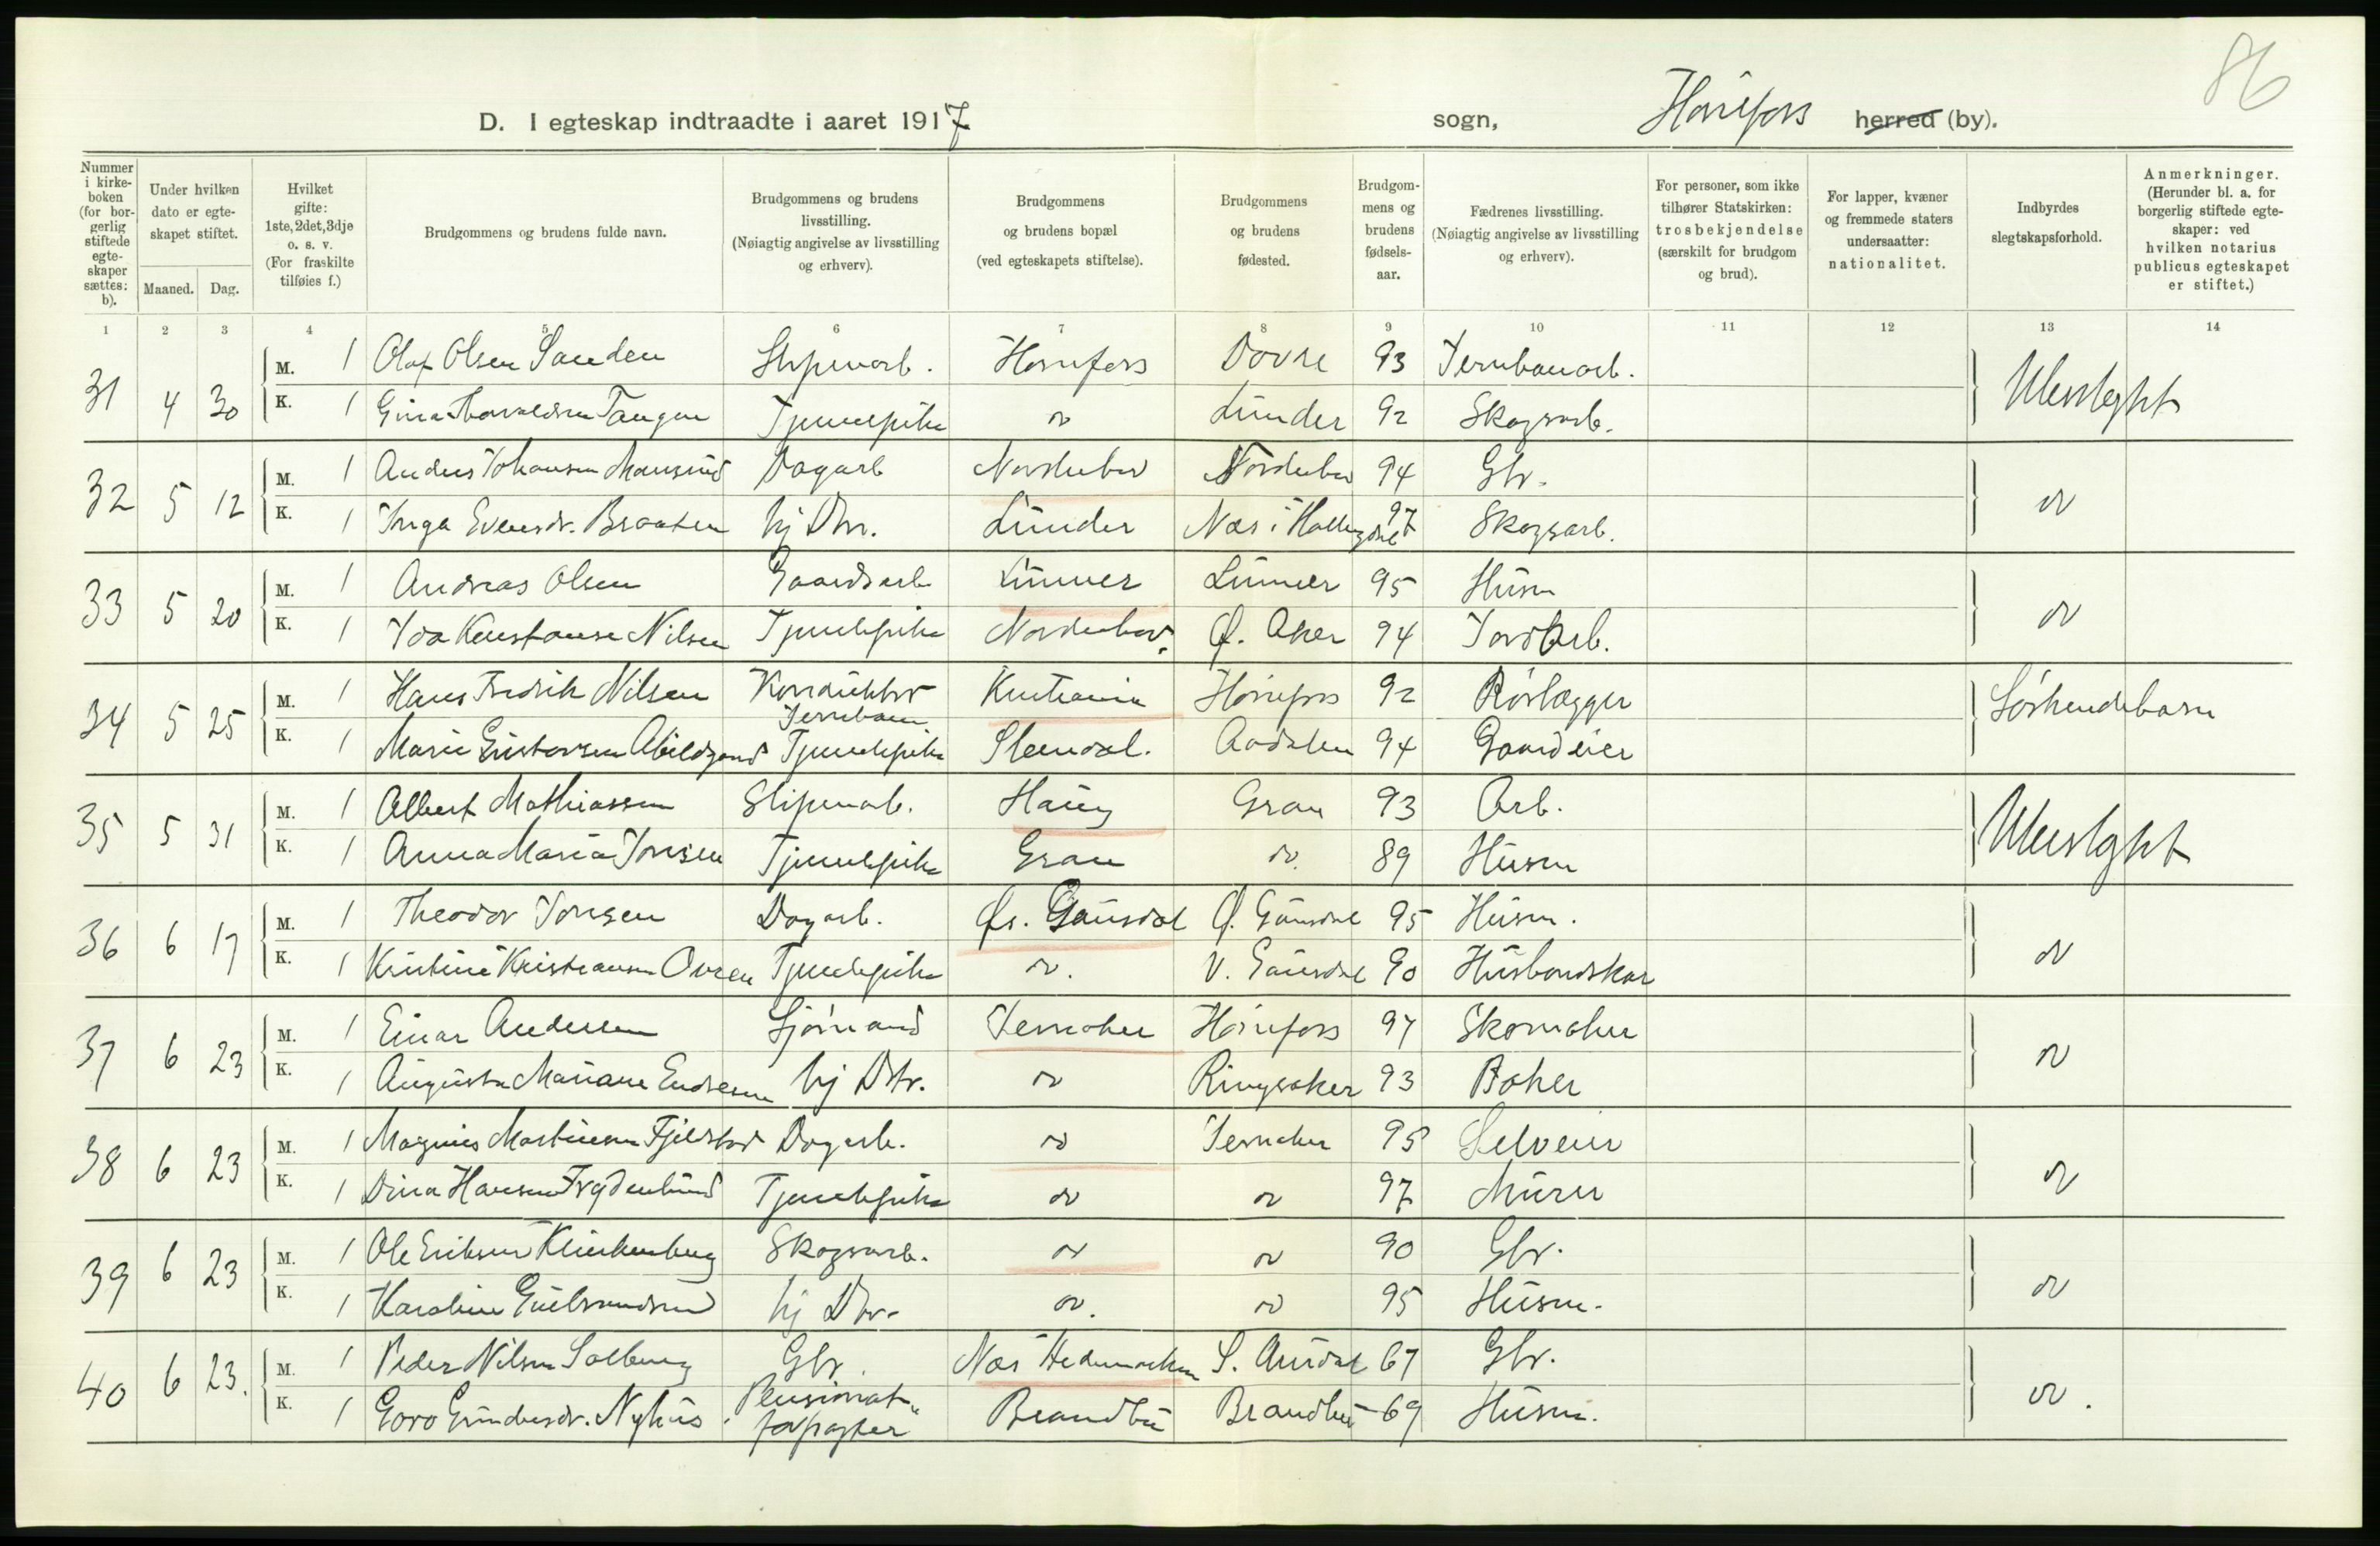 86
D. I egteskap indtraadte i aaret 1917 sogn, Hønefoss herred (by).
Nummer i kirke-boken (for bor-gerlig stiftede egte-skaper sættes: b).
Under hvilken dato er egte-skapet stiftet.
Maaned. Dag.
Hvilket gifte: 1ste, 2det, 3dje o. s. v. (For fraskilte tilføies f.)
Brudgommens og brudens fulde navn.
Brudgommens og brudens livsstilling. (Nøiagtig angivelse av livsstilling og erhverv).
Brudgommens og brudens bopæl (ved egteskapets stiftelse).
Brudgommens og brudens fødested.
Brudgom-mens og brudens fødsels-aar.
Fædrenes livsstilling. (Nøiagtig angivelse av livsstilling og erhverv).
For personer, som ikke tilhører Statskirken: trosbekjendelse (særskilt for brudgom og brud).
For lapper, kvæner og fremmede staters undersaatter: nationalitet.
Indbyrdes slegtskapsforhold.
Anmerkninger. (Herunder bl. a. for borgerlig stiftede egte-skaper: ved hvilken notarius publicus egteskapet er stiftet.)
1 2 3 4 5 6 7 8 9 10 11 12 13 14
31 4 30 M. 1 Olaf Olsen Sanden Sliperarb. Hønefoss Dovre 93 Jernbanearb. Ubeslegtet
K. 1 Gina Thorvaldsen Tangen Tjenestepike do Lunder 92 Skogsarb.
32 5 12 M. 1 Anders Johansen Dagarb Norderhov Norderhov 94 Gbr. do
K. 1 Inga Evensdr. Braaten hj Dtr. Lunder Nes i Hallingdal 97 Skogsarb.
33 5 20 M. 1 Andreas Olsen Gaardsarb Lunner Lunner 95 Husm do
K. 1 Ida Konstanse Nilsen Tjenestepike Norderhov. Ø. Aker 94 Jordarb.
34 5 25 M. 1 Hans Fredrik Nilsen Konduktør Jernbanen Kristiania Hønefoss 92 Rørlægger Søskendebarn
K. 1 Marie Gustavsen Abildgaard Tjenestepike Stensdal. Aadalen 94 Gaardeier
35 5 31 M. 1 Albert Mathiassen Sliperarb. Haug Gran 93 Arb. Ubeslegtet
K. 1 Anna Maria Jonsen Tjenestepike Gran do. 89 Husm
36 6 17 M. 1 Theodor Jonsen Dagarb. Øs. Gausdal Ø. Gausdal 95 Husm. do
K. 1 Kristine Kristiansen Tjenestepike do. V. Gausdal 90 Husbondskar
37 6 23 M. 1 Einar Andersen Sjømand Jevnaker Hønefoss 97 Skomaker do
K. 1 Augusta Mariane Endresen hj Dtr. do Ringsaker 93 Baker
38 6 23 M. 1 Magnus Martinsen Fjeldstad Dagarb. do Jevnaker 95 Selveier do
K. 1 Dina Hansen Frydenlund Tjenestepike do do 97 Murer
39 6 23 M. 1 Ole Eriksen Klinkenberg Skogsarb. do do 90 Gbr. do
K. 1 Karoline Gulbrandsen hj Dtr. do. do 95 Husm.
40 6 23. M. 1 Peder Nilsen Solberg Gbr. Nes Hedemarken S. Aurdal 67 Gbr. do.
K. 1 Goro Gundersdr. Nyhus Pensionat forpagter Brandbu Brandbu 69 Husm.